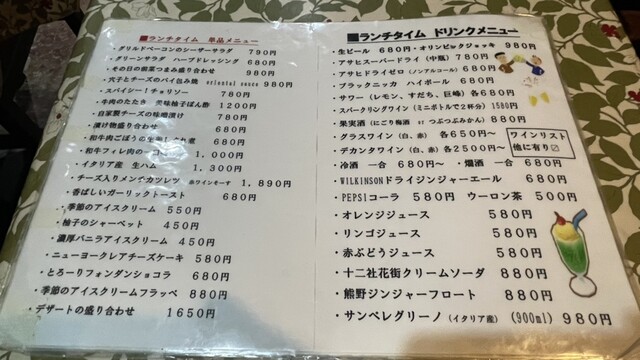 ■ランチタイム 単品メニュー
・グリルドベーコンのシーザーサラダ 790円
・グリーンサラダ ハーブドレッシング 680円
・その日の前菜つまみ盛り合わせ 980円
・穴子とチーズのパイ包み焼 oriental sauce 980円
・スパイシー!チョリソー 780円
・牛肉のたたき 美味柚子ぽん酢 1200円
・自家製チーズの味噌漬け 780円
・漬け物盛り合わせ 680円
・和牛肉ごぼうの 煮 680円
・和牛フィレ肉の 1.000円
・イタリア産 生ハム 1.300円
・チーズ入りメンチカツレツ 赤ワインそーす 1.890円
・香ばしいガーリックトースト 680円
・季節のアイスクリーム 550円
・柚子のシャーベット 450円
・濃厚バニラアイスクリーム 450円
・ニューヨークレアチーズケーキ 580円
・とろーりフォンダンショコラ 680円
・季節のアイスクリームフラッペ 880円
・デザートの盛り合わせ 1650円
■ランチタイム ドリンクメニュー
・生ビール 680円・オリンピックジョッキ 980円
・アサヒスーパードライ(中瓶) 780円
・アサヒドライゼロ(ノンアルコール) 680円
・ブラックニッカ ハイボール 680円
・サワー(レモン、すだち、巨峰)各680円
・スパークリングワイン(ミニボトルで2杯分)1580円
・果実酒(にごり梅酒 or つぶつぶみかん)880円
・グラスワイン(白、赤) 各650円~
・デカンタワイン(白、赤) 各2500円~
ワインリスト
他に有り☑
・冷酒 一合 680円~ ・燗酒 一合 680円
・WILKINSONドライジンジャーエール 680円
・PEPSIコーラ 580円 ウーロン茶 500円
・オレンジジュース 580円
・リンゴジュース 580円
・赤ぶどうジュース 580円
・十二社花街クリームソーダ 880円
・熊野ジンジャーフロート 880円
・サンペレグリーノ(イタリア産) (900ml) 980円